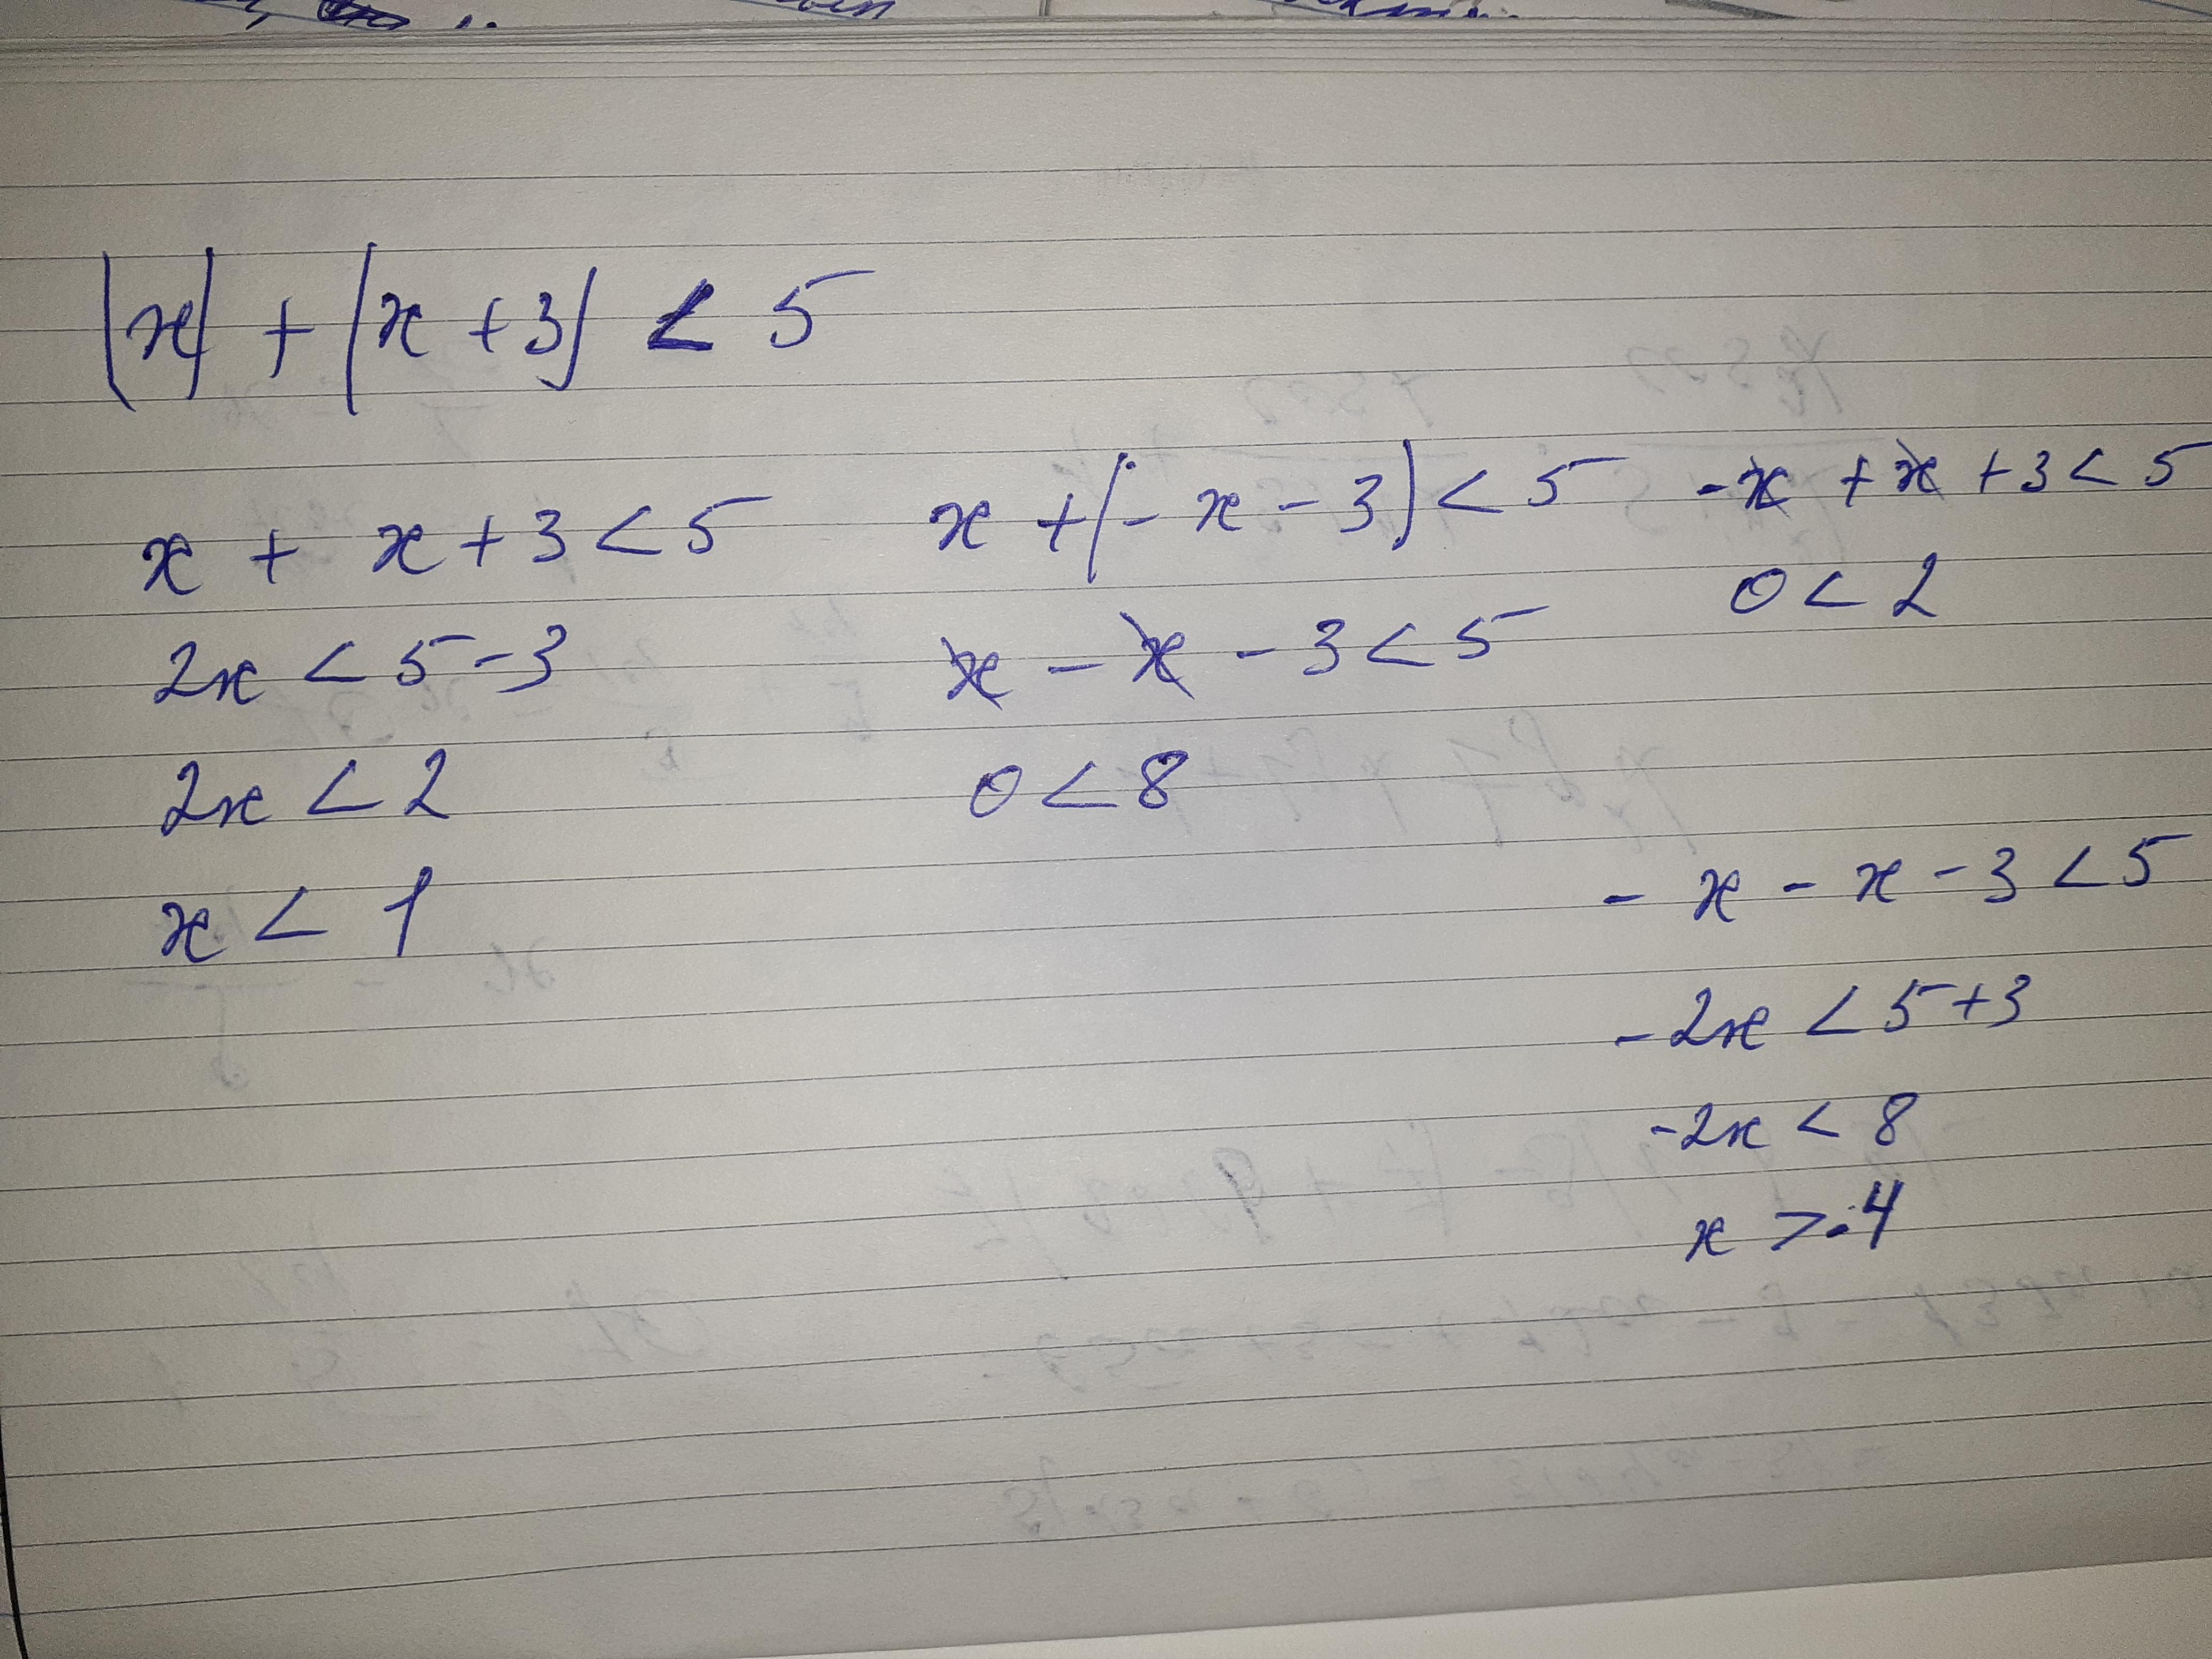 |x| + |x + 3| < 5
x + x + 3 < 5
2x < 5 - 3
2x < 2
x < 1
x + (- x - 3) < 5
x - x - 3 < 5
0 < 8
- x + x + 3 < 5
0 < 2
- x - x - 3 < 5
- 2x < 5 + 3
- 2x < 8
x > -4